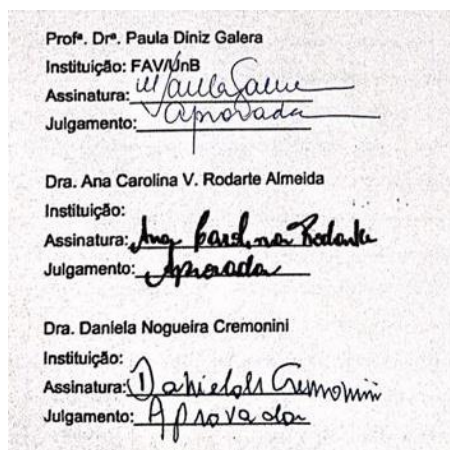 Profª. Drª. Paula Diniz Galera
Instituição: FAV/UnB
Assinatura: Paula Galera
Julgamento: Aprovada
Dra. Ana Carolina V. Rodarte Almeida
Instituição:
Assinatura: Ana Carolina Rodarte
Julgamento: Aprovada
Dra. Daniela Nogueira Cremonini
Instituição:
Assinatura: Daniela Cremonini
Julgamento: Aprovada